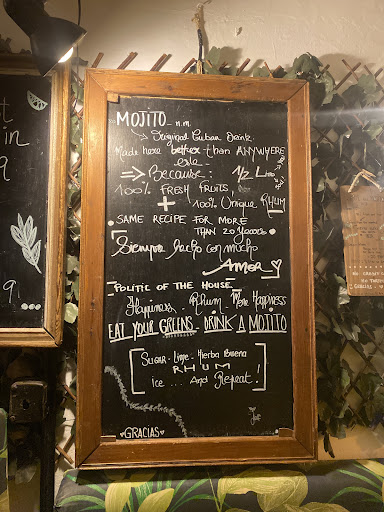 MOJITO - n.m.
→ Original Cuban Drink.
Made here better than ANYWHERE
else -
=> Because: 1/2 L
100% FRESH FRUITS,
+ 100% Unique RHUM
SAME RECIPE FOR MORE
THAN 20 Years.
Siempre hecho con mucho
AMOR
POLITIC OF THE HOUSE
Happiness - Rhum - More Happiness
EAT YOUR GREENS - DRINK A MOJITO
SUGAR - Lime - Hierba Buena
RHUM
ice ... And Repeat!
♥GRACIAS♥
t
in
9
9...